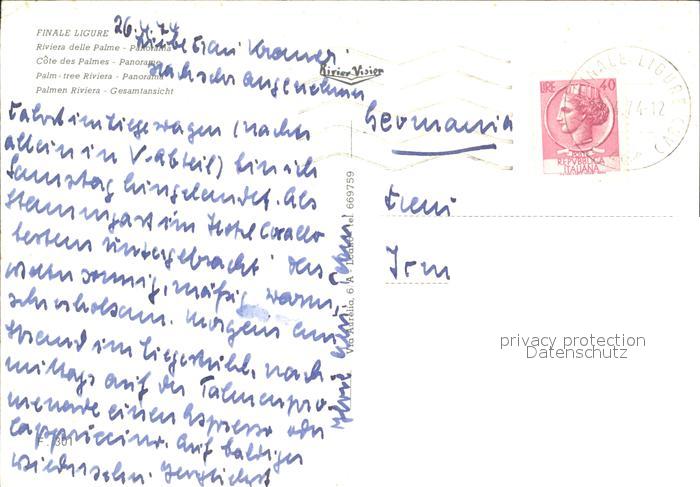 FINALE LIGURE
Riviera delle Palme - Panorama
Côte des Palmes - Panorama
Palm-tree Riviera - Panorama
Palmen Riviera - Gesamtansicht
26.
Liebe Frau Kramer!
Nach sehr angenehmer
Fahrt im Liegewagen (nachts
allein im V-Abteil) bin ich
Samstag hier gelandet. Als
Stammgast im Hotel Corallo
bestens untergebracht! Das
Wetter sonnig, mäßig warm,
sehr erholsam. Morgens am
Strand im Liegestuhl, nach-
mittags auf der Palmenpro-
menade einen Espresso oder
Cappuccino. Auf baldiges
Wiedersehn. Herzlichst
Rivier-Vision
Via Aurelia, 6 A - Loano - Tel. 669759
Germania
Frau
Irm
LIRE 40
POSTE
REPVBBLICA
ITALIANA
FINALE LIGURE
74-12
privacy protection
Datenschutz
F. 301